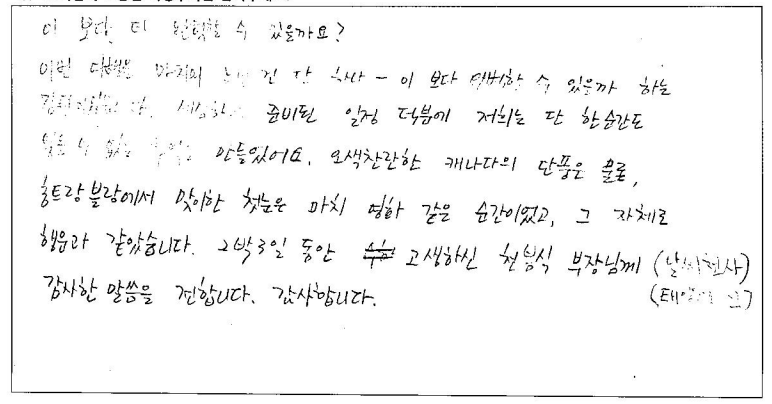 이 보다 더 완벽할 수 있을까요?
이번 여행을 마치며 단 - 이 보다 완벽할 수 있을까 하는
준비된 일정 덕분에 저희는 단 한순간도
잊을 수 없는 만들었어요. 오색찬란한 캐나다의 단풍은 물론,
몽트랑블랑에서 맞이한 첫눈은 마치 영화 같은 순간이었고, 그 자체로
행운과 같았습니다. 2박3일 동안 고생하신 천봉식 부장님께 (날씨천사)
감사한 말씀을 전합니다. 감사합니다. (태양의